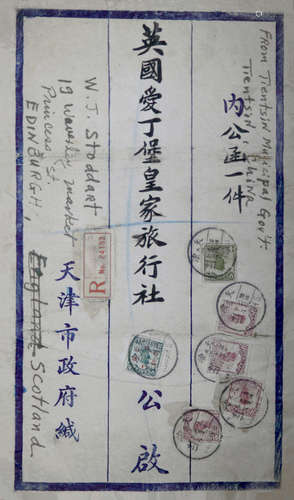 From Tientsin Municipal Gov't.
Tientsin, China
內公函一件
英國愛丁堡皇家旅行社
公啟
天津市政府緘
W. J. Stoddart
19 Waverley Market
Princess St.
EDINBURGH,
England Scotland
R No. 24193